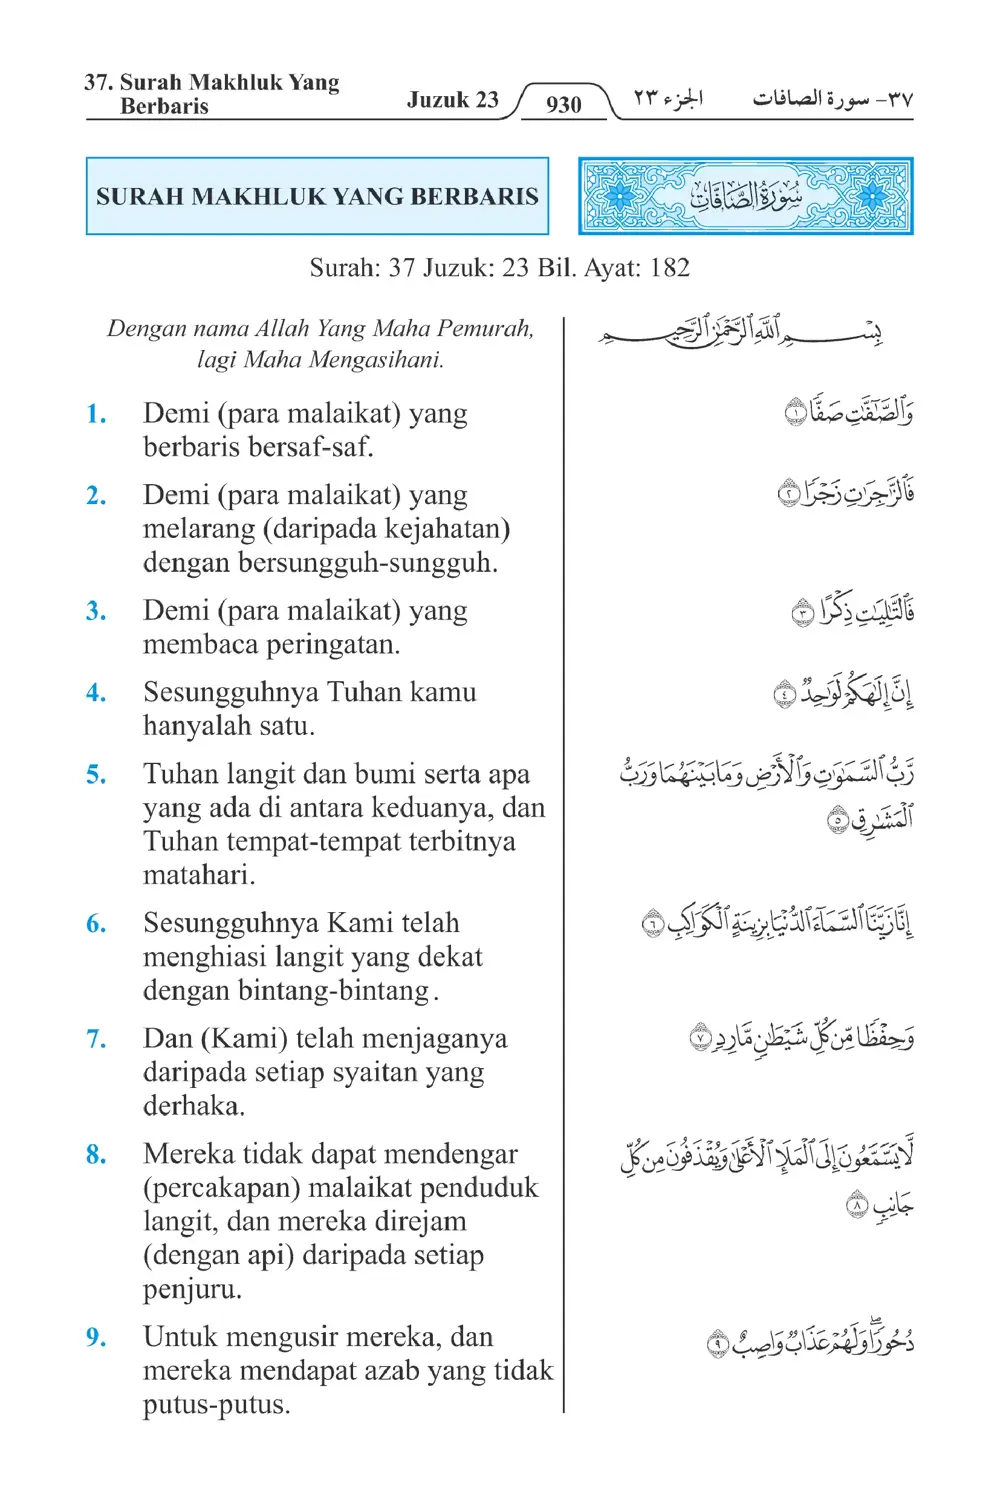 37. Surah Makhluk Yang
Berbaris
Juzuk 23
930
الجزء ٢٣
٣٧- سورة الصافات
SURAH MAKHLUK YANG BERBARIS
سُورَةُ الصَّافَّاتِ
Surah: 37 Juzuk: 23 Bil. Ayat: 182
Dengan nama Allah Yang Maha Pemurah,
lagi Maha Mengasihani.
بِسْمِ ٱللَّهِ ٱلرَّحْمَٰنِ ٱلرَّحِيمِ
1. Demi (para malaikat) yang
berbaris bersaf-saf.
وَٱلصَّٰٓفَّٰتِ صَفًّا ١
2. Demi (para malaikat) yang
melarang (daripada kejahatan)
dengan bersungguh-sungguh.
فَٱلزَّٰجِرَٰتِ زَجْرًا ٢
3. Demi (para malaikat) yang
membaca peringatan.
فَٱلتَّٰلِيَٰتِ ذِكْرًا ٣
4. Sesungguhnya Tuhan kamu
hanyalah satu.
إِنَّ إِلَٰهَكُمْ لَوَٰحِدٌ ٤
5. Tuhan langit dan bumi serta apa
yang ada di antara keduanya, dan
Tuhan tempat-tempat terbitnya
matahari.
رَّبُّ ٱلسَّمَٰوَٰتِ وَٱلْأَرْضِ وَمَا بَيْنَهُمَا وَرَبُّ
ٱلْمَشَٰرِقِ ٥
6. Sesungguhnya Kami telah
menghiasi langit yang dekat
dengan bintang-bintang.
إِنَّا زَيَّنَّا ٱلسَّمَآءَ ٱلدُّنْيَا بِزِينَةٍ ٱلْكَوَاكِبِ ٦
7. Dan (Kami) telah menjaganya
daripada setiap syaitan yang
derhaka.
وَحِفْظًا مِّن كُلِّ شَيْطَٰنٍ مَّارِدٍ ٧
8. Mereka tidak dapat mendengar
(percakapan) malaikat penduduk
langit, dan mereka direjam
(dengan api) daripada setiap
penjuru.
لَّا يَسَّمَّعُونَ إِلَى ٱلْمَلَإِ ٱلْأَعْلَىٰ وَيُقْذَفُونَ مِن كُلِّ
جَانِبٍ ٨
9. Untuk mengusir mereka, dan
mereka mendapat azab yang tidak
putus-putus.
دُحُورًا ۖ وَلَهُمْ عَذَابٌ وَاصِبٌ ٩